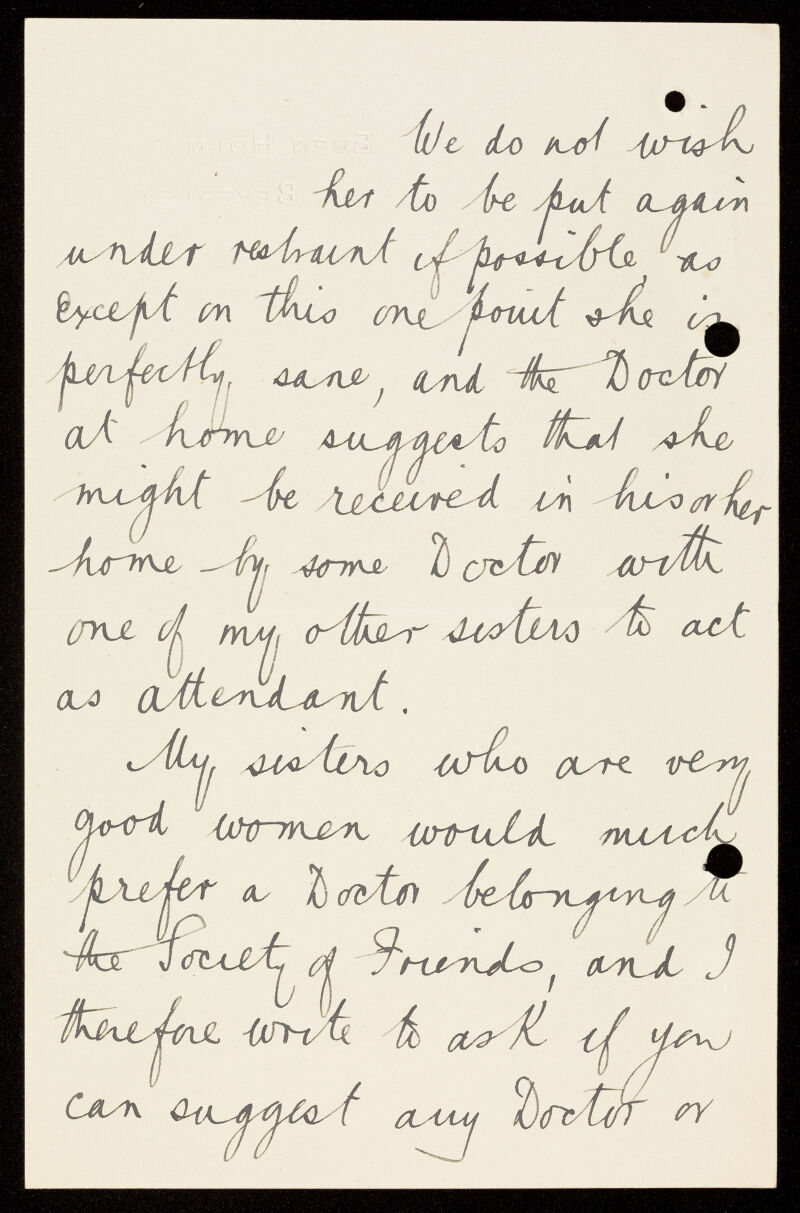 We do not wish
her to be put again
under restraint if possible, as
except on this one point she is
perfectly sane, and the Doctor
at home suggests that she
might be received in his or her
home by some Doctor with
one of my other sisters to act
as attendant.
My sisters who are very
good women would much
prefer a Doctor belonging to
the Society of Friends, and I
therefore write to ask if you
can suggest any Doctor or